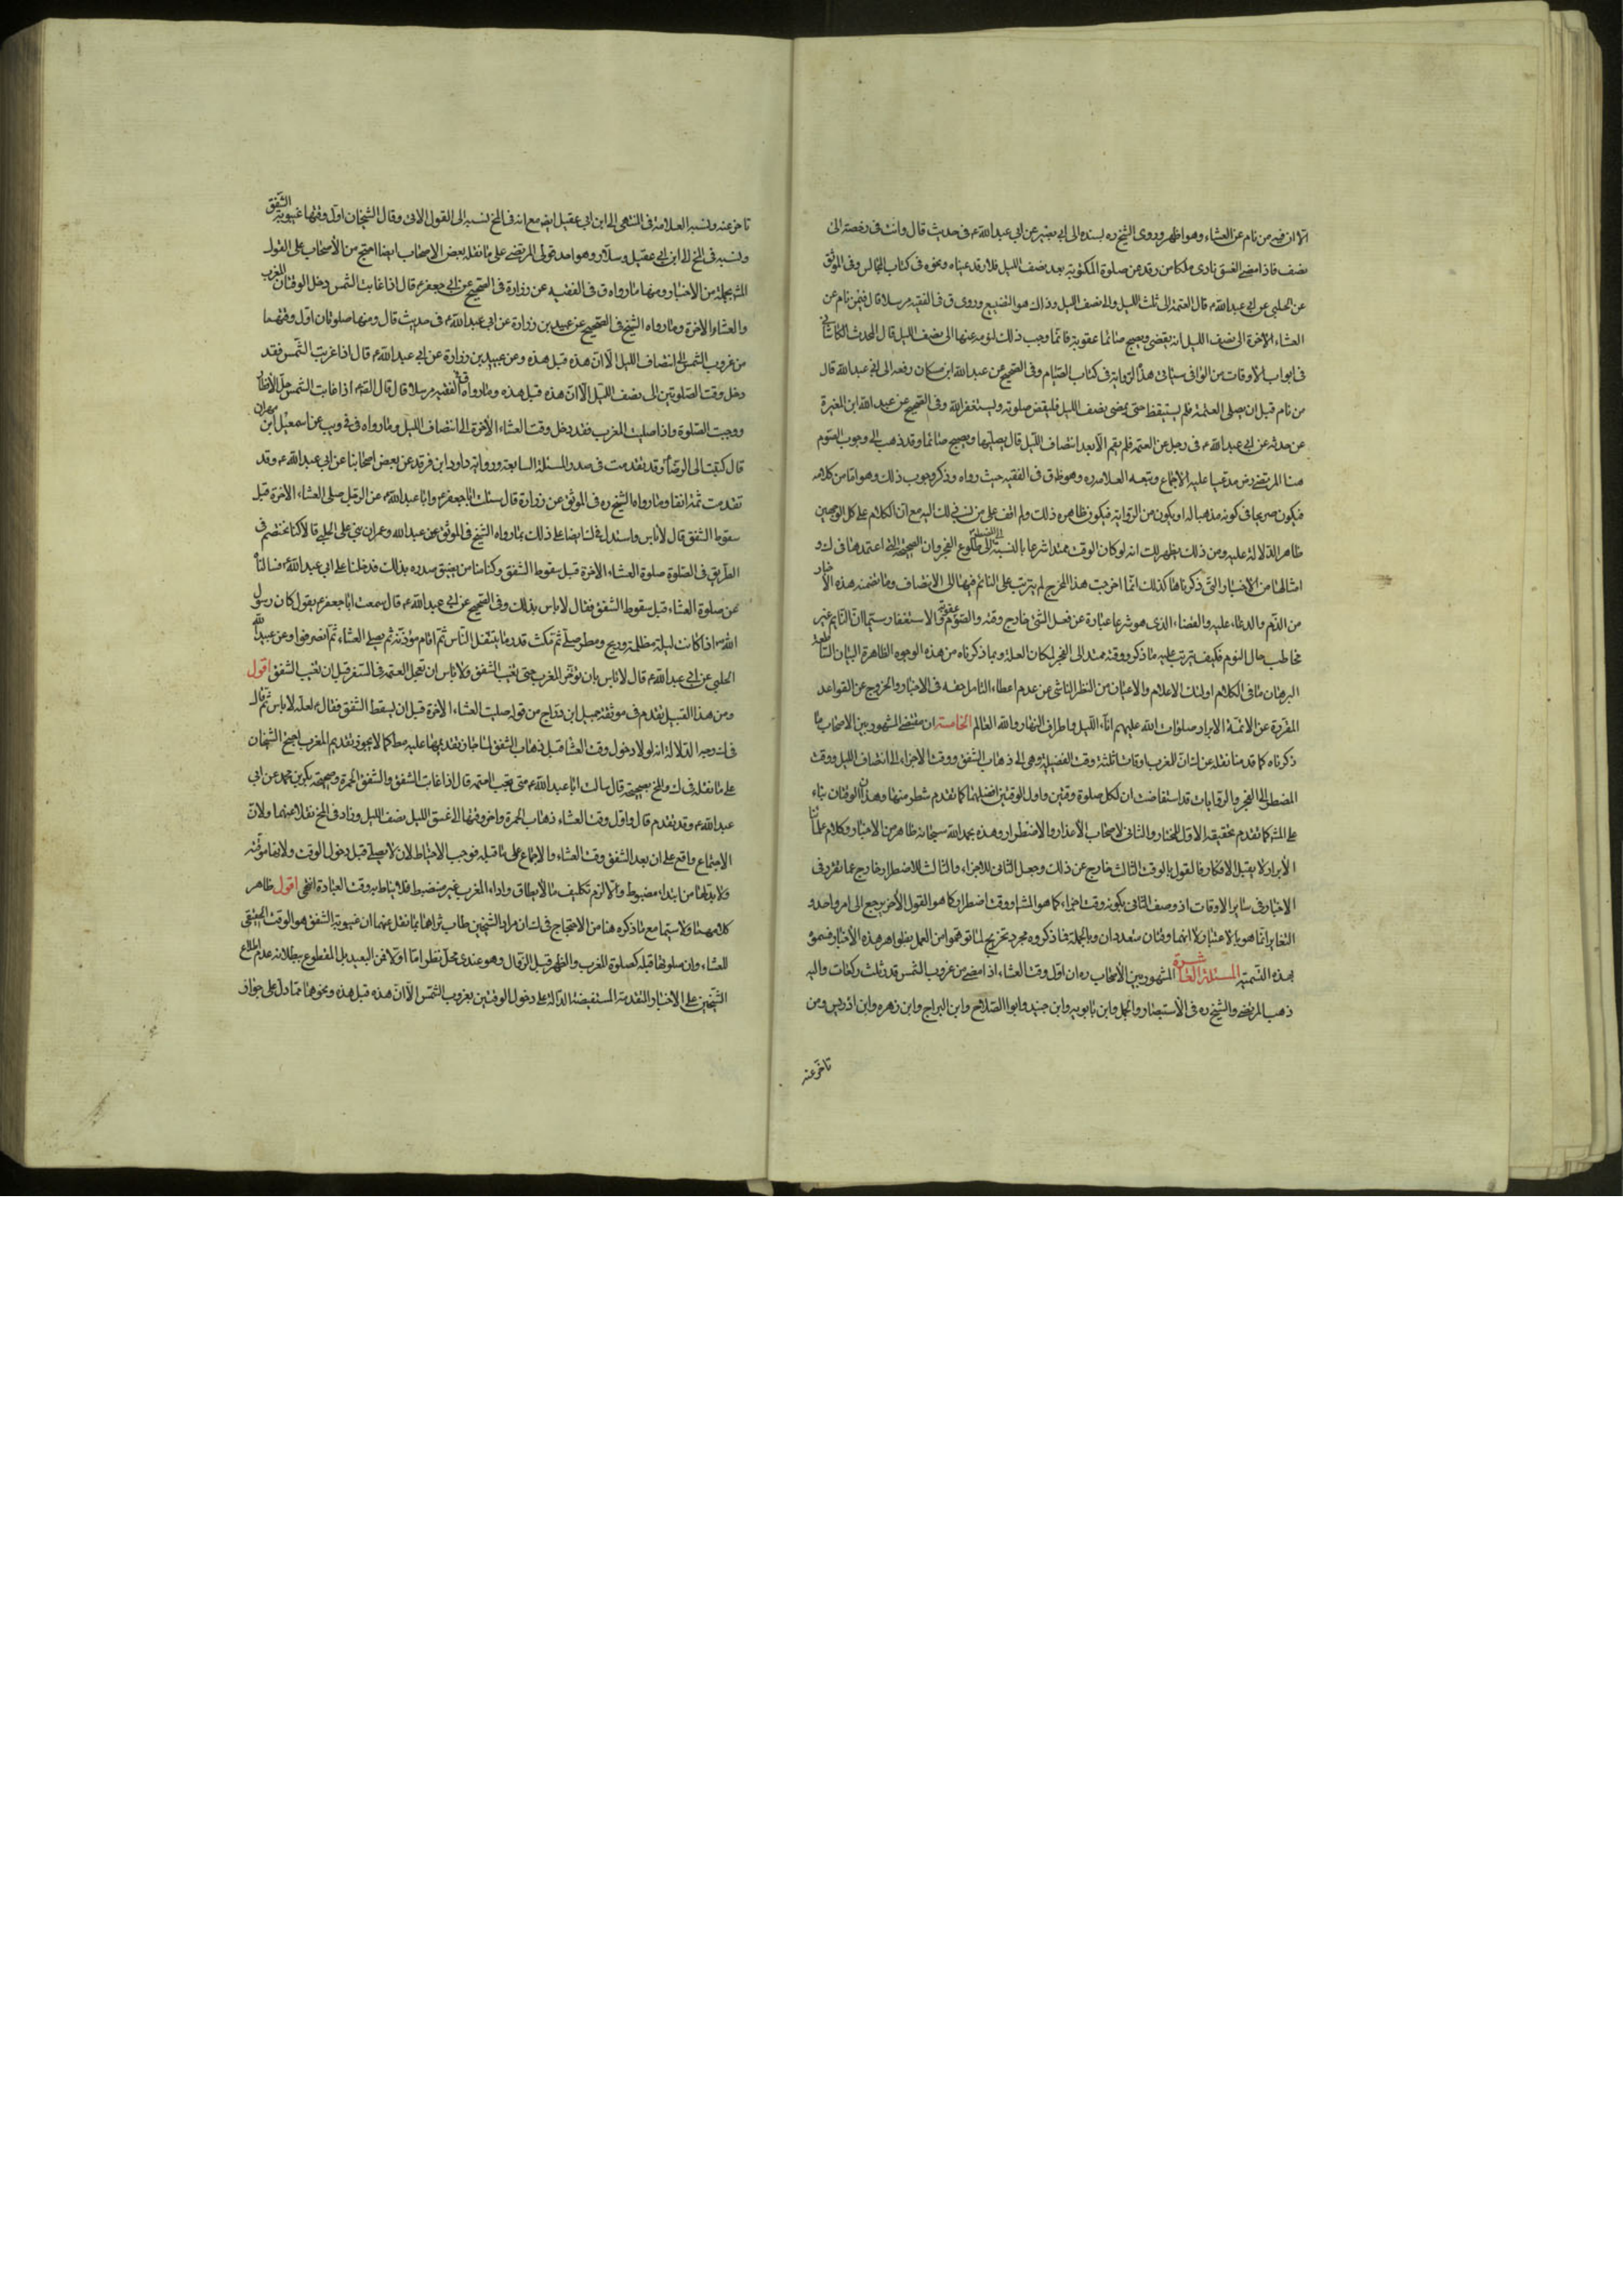 الا ان فيه من نام عن العشاء وهو اظهر وروى الشيخ ره بسنده الى ابي بصير عن ابي عبد الله ع في حديث قال وانت في رخصة الى
نصف فاذا مضى الغسق نادى ملكا من رقد عن صلوة المكتوبة بعد نصف الليل فلا رقد عيناه ونحوه في كتاب المجالس وفي الموثق
عن الحلبي عن ابي عبد الله ع قال العتمة الى ثلث الليل والى نصف الليل وذلك هو التضييع وروى ق في الفقيه مرسلا قال فيمن نام عن
العشاء الاخرة الى نصف الليل انه يقضي ويصبح صائما عقوبة قائما وجب ذلك لنومه عنها الى نصف الليل قال المحدث الكاشاني
في ابواب الاوقات من الوافي سياتي هذا الرواية في كتاب الصيام وفي الصحيح عن عبد الله ابن مسكان رفعه الى ابي عبد الله قال
من نام قبل ان يصلي العتمة فلم يستيقظ حتى يمضي نصف الليل فليقض صلوته وليستغفر الله وفي الصحيح عن عبد الله ابن المغيرة
عن حدثه عن ابي عبد الله ع في رجل عن العتمة فلم يقم الا بعد انتصاف الليل قال يصليها ويصبح صائما وقد ذهب الى وجوب الصوم
هنا المرتضى رض مدعيا عليه الاجماع وتبعه العلامه ره وهو ظ ق في الفقيه حيث رواه وذكر وجوب ذلك وهو اما من كلامه
فيكون صريحا في كونه مذهبا له او يكون من الرواية فيكون ظاهره ذلك ولم اقف على من نسب ذلك اليه مع ان الكلام على كل الوجهين
ظاهر الدلالة عليه ومن ذلك يظهر لك انه لو كان الوقت ممتدا شرعا بالنسبة الى النائم الى طلوع الفجر وان الصحيحة التي اعتمدها في ك و
امثالها من الاخبار التي ذكرناها كذلك انما خرجت هذا المخرج لم يترتب على النائم فيها الى الانتصاف وما تضمنه هذه الاخبار
من الذم والدعاء عليه والقضاء الذي هو شرعا عبارة عن فعل الشئ خارج وقته والصوم عقوبة والاستغفار سيما ان النايم غير
مخاطب حال النوم فكيف يترتب عليه ما ذكر ووقته ممتد الى الفجر لمكان العذر وبما ذكرناه من هذه الوجوه الظاهرة البيان الساطعة
البرهان ما في الكلام اولئك الاعلام والاعيان من النظر الناشي من عدم اعطاء التامل حقه في الاخبار والخروج عن القواعد
المقررة عن الائمة الابرار صلوات الله عليهم اناء الليل واطراف النهار والله العالم الخامسة ان مقتضى المشهور بين الاصحاب ما
ذكرناه كما قدمنا نقله عن ان للمغرب اوقاتا ثلثة وقت الفضيلة وهي الى ذهاب الشفق ووقت الاجزاء الى انتصاف الليل ووقت
المضطر الى الفجر والروايات قد استفاضت ان لكل صلوة وقتين واول الوقتين افضلهما كما تقدم شطر منها وهذان الوقتان بناء
على المشه كما تقدم تحقيقه الاول للمختار والثاني لاصحاب الاعذار والاضطرار وهذه بحمد الله سبحانه ظاهر من الاخبار وكلام علمائنا
الابرار لا يقبل الانكار فالقول بالوقت الثالث خارج عن ذلك وجعل الثاني للاجزاء والثالث للاضطرار خارج عما تقرر في
الاخبار في سائر الاوقات اذ وصف الثاني بكونه وقت اجزاء كما هو المشه او وقت اضطرار كما هو القول الاخر يرجع الى امر واحد و
التغاير انما هو بالاعتبار لا انهما وقتان متعددان وبالجملة فما ذكروه مجرد تخريج لما توهموا من العمل بظواهر هذه الاخبار فسموه
بهذه التسمية المسئلة العاشرة المشهور بين الاصحاب ره ان اول وقت العشاء اذا مضى من غروب الشمس قدر ثلث ركعات واليه
ذهب المرتضى والشيخ ره في الاستبصار والجمل وابن بابويه وابن جنيد وابوا الصلاح وابن البراج وابن زهره وابن ادريس ومن
تاخر عنه
تاخر عنه ونسبه العلامة في المنتهى الى ابن ابي عقيل ايض مع انه في المخ نسبه الى القول الاتي وقال الشيخان اول وقتها غيبوبة الشفق
ونسبه في المخ الى ابن ابي عقيل وسلار وهو احد قولي المرتضى على ما نقله بعض الاصحاب ايضا احتج من الاصحاب على القول
المشه بجملة من الاخبار ومنها ما رواه ق في الفقيه عن زرارة في الصحيح عن ابي جعفر ع قال اذا غابت الشمس دخل الوقتان المغرب
والعشاء الاخرة وما رواه الشيخ في الصحيح عن عبيد بن زرارة عن ابي عبد الله ع في حديث قال ومنها صلوتان اول وقتهما
من غروب الشمس الى انتصاف الليل الا ان هذه قبل هذه وعن عبيد بن زرارة عن ابي عبد الله ع قال اذا غربت الشمس فقد
دخل وقت الصلوتين الى نصف الليل الا ان هذه قبل هذه وما رواه ق في الفقيه مرسلا قال قال الص ع اذا غابت الشمس حل الافطار
ووجبت الصلوة واذا صليت المغرب فقد دخل وقت العشاء الاخرة الى انتصاف الليل وما رواه في في ويب عن اسمعيل ابن مهران
قال كتبت الى الرضا ع وقد تقدمت في صدر المسئلة السابعة ورواية داود ابن فرقد عن بعض اصحابنا عن ابي عبد الله ع وقد
تقدمت ثمة انفا وما رواه الشيخ ره في الموثق عن زرارة قال سئلت ابا جعفر ع وابا عبد الله ع عن الرجل صلى العشاء الاخرة قبل
سقوط الشفق قال لا باس واستدل في ك ايضا على ذلك بما رواه الشيخ في الموثق عن عبد الله وعمران بني علي الحلبي قالا كنا نختصم في
الطريق في الصلوة صلوة العشاء الاخرة قبل سقوط الشفق وكنا منا من يضيق صدره بذلك فدخلنا على ابي عبد الله ع فسالناه
عن صلوة العشاء قبل سقوط الشفق فقال لا باس بذلك وفي الصحيح عن ابي عبد الله ع قال سمعت ابا جعفر ع يقول كان رسول
الله ص اذا كانت ليلة مظلمة وريح ومطر صلى ثم مكث قدر ما يتنفل الناس ثم اقام مؤذنه ثم يصلى العشاء ثم انصرفوا وعن عبيد الله
الحلبي عن ابي عبد الله ع قال لا باس بان تؤخر المغرب حتى تغيب الشفق ولا باس ان تعجل العتمه في السفر قبل ان تغيب الشفق اقول
ومن هذا القبيل تقدم في موثقة جميل ابن دراج من قوله صليت العشاء الاخرة قبل ان يسقط الشفق فقال ع لعلة لا باس ثم قال
في ك وجه الدلالة انه لولا دخول وقت العشاء قبل ذهاب الشفق لما جاز تقديمها عليه مطا كما لا يجوز تقديم المغرب احتج الشيخان
على ما نقله في ك والمخ بصحيحة قال سالت ابا عبد الله ع متى تجب العتمه قال اذا غابت الشفق والشفق الحمرة وصحيحة بكر بن محمد عن ابي
عبد الله ع وقد تقدم قال واول وقت العشاء ذهاب الحمرة واخر وقتها الى غسق الليل نصف الليل وزاد في المخ نقلا عنهما ولان
الاجماع واقع على ان بعد الشفق وقت العشاء ولا اجماع على ما قبله فوجب الاحتياط لان لا يصلى قبل دخول الوقت ولانها موقتة
ولا بد لها من ابتداء مضبوط والا لزم تكليف ما لا يطاق واداء المغرب غير منضبط فلا يناط به وقت العبادة انتهى اقول ظاهر
كلامه هنا ولا سيما مع ما ذكره هنا من الاحتجاج في ان مراد الشيخين طاب ثراهما بما نقل عنهما ان غيبوبة الشفق هو الوقت الحقيقي
للعشاء وان صلوتها قبله كصلوة المغرب والظهر قبل الزوال وهو عندي محل نظر اما اولا فمن البعيد بل المقطوع ببطلانه عدم اطلاع
الشيخين على الاخبار المتقدمة المستفيضة الدالة على دخول الوقتين بغروب الشمس الا ان هذه قبل هذه ونحوهما مما دل على جواز